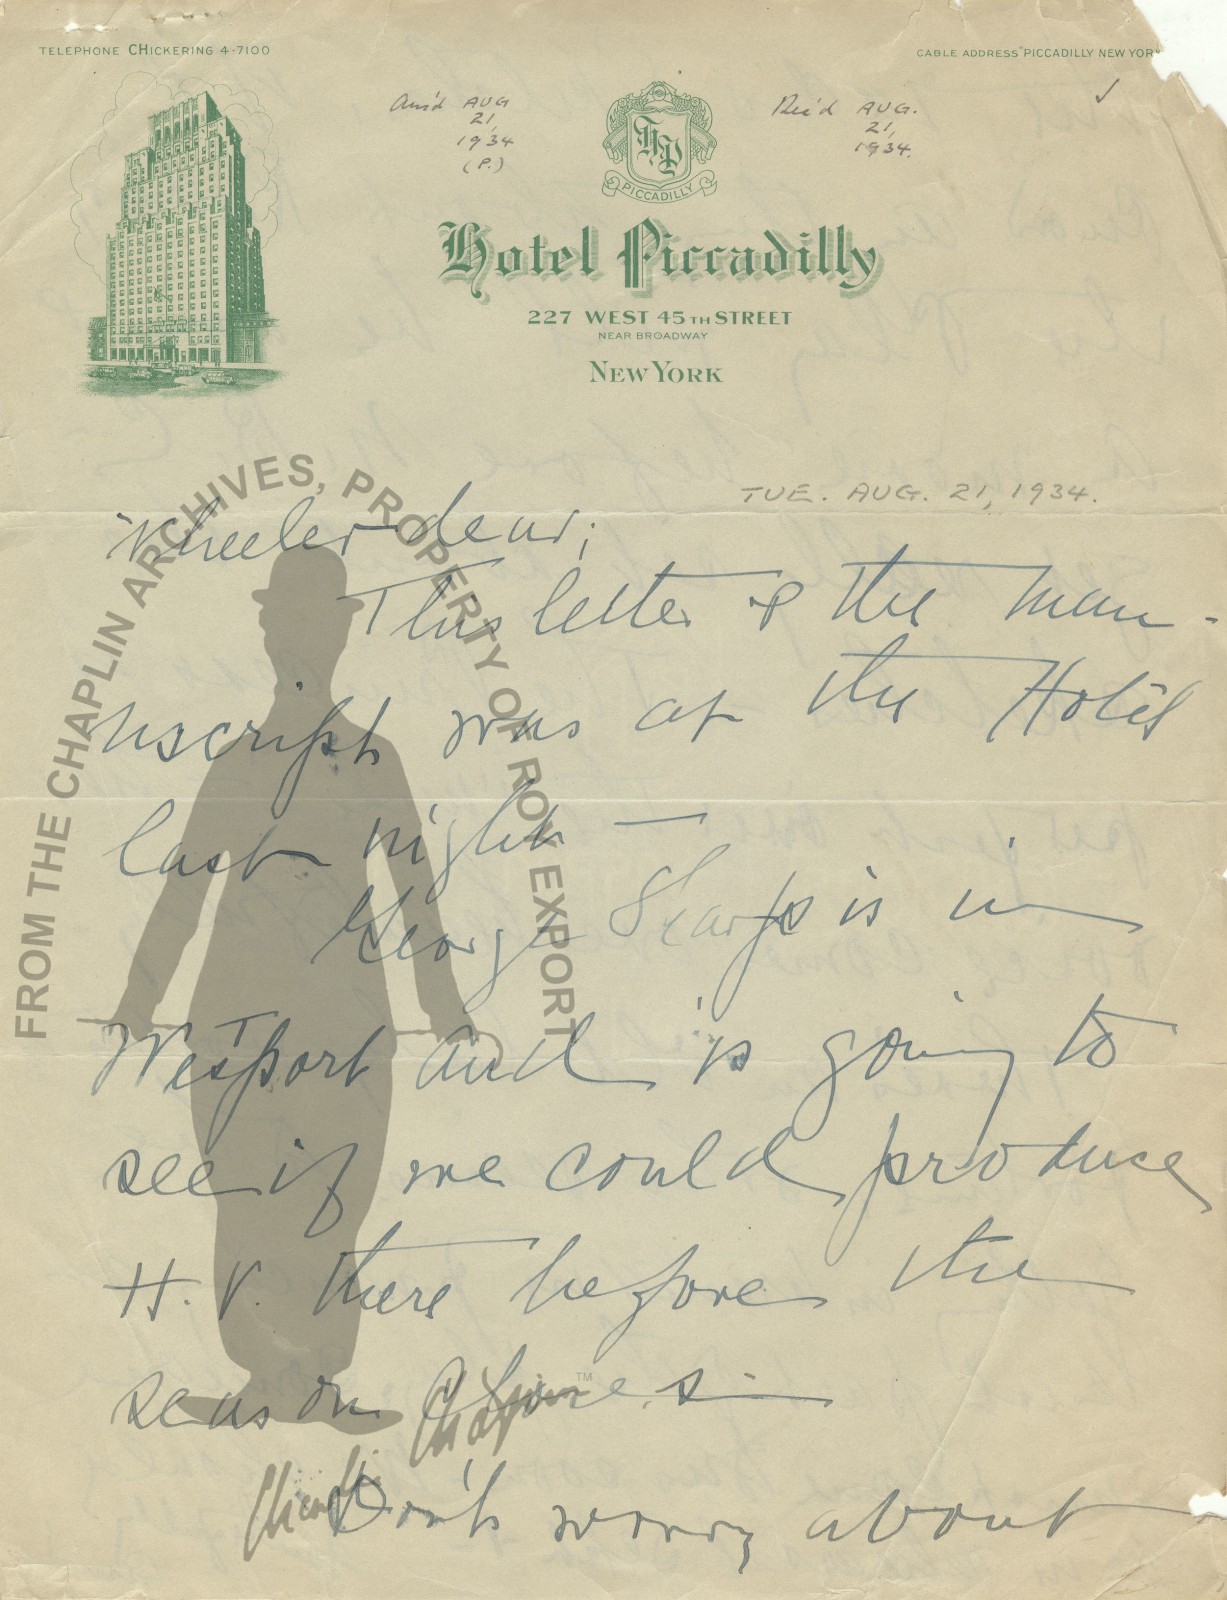 TELEPHONE CHICKERING 4-7100
CABLE ADDRESS "PICCADILLY NEW YOR
Ans'd AUG
21,
1934
(P.)
Rec'd AUG.
21,
1934.
HP
PICCADILLY
Hotel Piccadilly
227 WEST 45TH STREET
NEAR BROADWAY
NEW YORK
TUE. AUG. 21, 1934.
Wheeler dear;
This letter & the man-
uscript was at the Hotel
last night —
George Sharp is in
Westport and is going to
see if we could produce
H.V. there before the
season closes —
Don't worry about
FROM THE CHAPLIN ARCHIVES, PROPERTY OF ROY EXPORT
Charlie Chaplin
TM